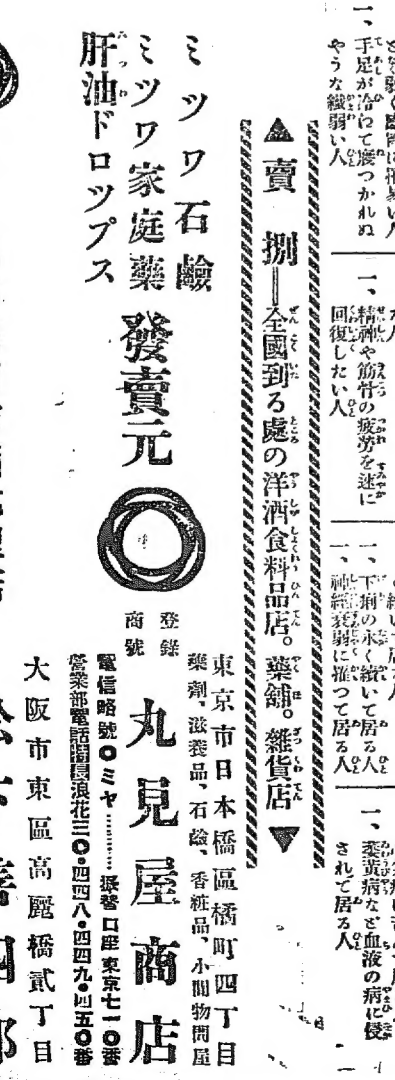 手足が冷えて寝つかれぬ
やうな繊弱い人
一、精神や筋骨の疲労を速に
回復したい人
一、下痢の永く続いて居る人
一、神経衰弱に罹つて居る人
一、萎黄病など血液の病に侵
されて居る人
▲賣捌―全國到る處の洋酒食料品店。藥舗。雜貨店▼
ミツワ石鹼
ミツワ家庭藥
肝油ドロツプス
發賣元
登錄
商號
東京市日本橋區橘町四丁目
藥劑、滋養品、石鹼、香粧品、小間物問屋
丸見屋商店
電信略號〇ミヤ………振替口座東京七一〇番
營業部電話特長浪花三〇・四四八・四四九・四五〇番
大阪市東區高麗橋貳丁目